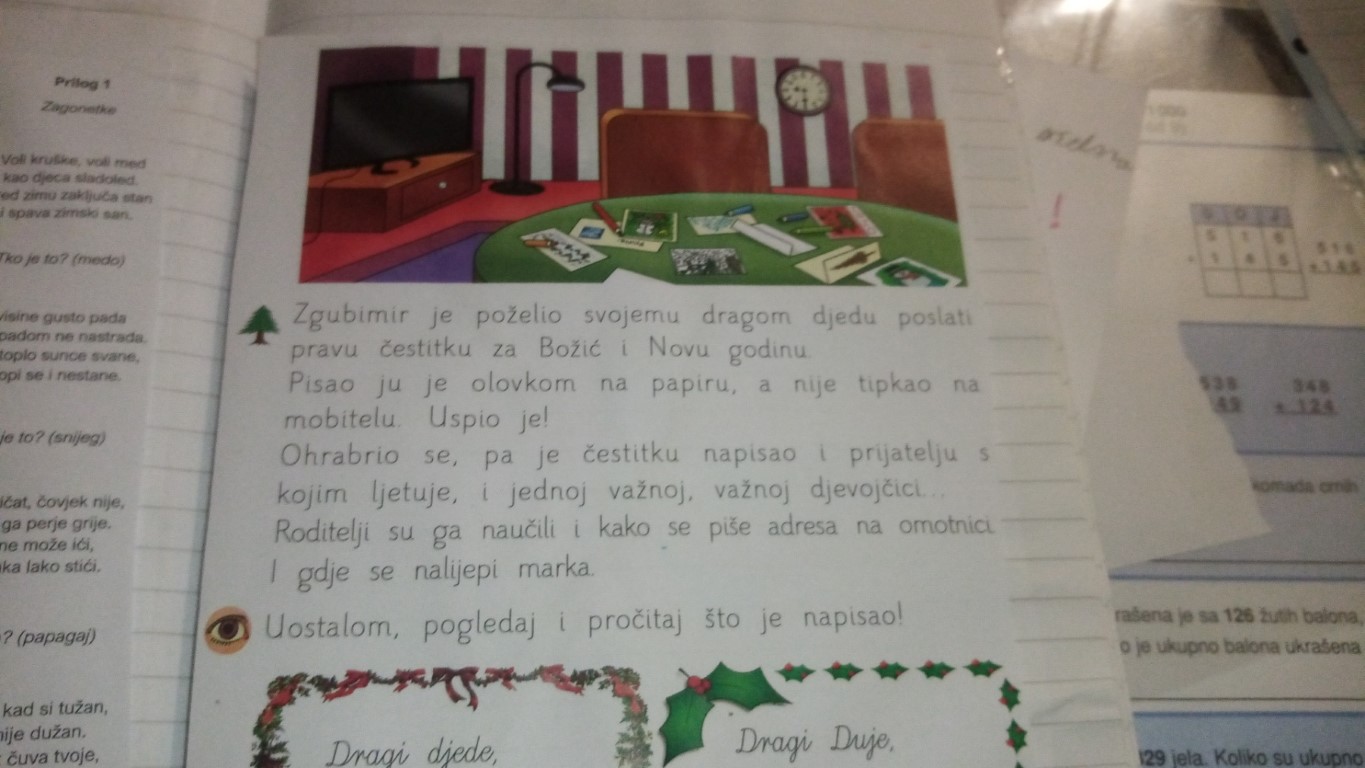 Prilog 1
Zagonetke
Voli kruške, voli med
kao djeca sladoled.
zimu zaključa stan
i spava zimski san.
Tko je to? (medo)
visine gusto pada
padom ne nastrada.
toplo sunce svane,
topi se i nestane.
je to? (snijeg)
čovjek nije,
ga perje grije.
ne može ići,
lako stići.
? (papagaj)
kad si tužan,
nije dužan.
čuva tvoje,
Zgubimir je poželio svojemu dragom djedu poslati
pravu čestitku za Božić i Novu godinu.
Pisao ju je olovkom na papiru, a nije tipkao na
mobitelu. Uspio je!
Ohrabrio se, pa je čestitku napisao i prijatelju s
kojim ljetuje, i jednoj važnoj, važnoj djevojčici...
Roditelji su ga naučili i kako se piše adresa na omotnici.
I gdje se nalijepi marka.
Uostalom, pogledaj i pročitaj što je napisao!
Dragi djede,
Dragi Duje,
S D J
5 1 6
+ 1 4 5
516
+145
538
348
+ 124
komada crnih
je sa 126 žutih balona,
o je ukupno balona ukrašena
129 jela. Koliko su ukupno